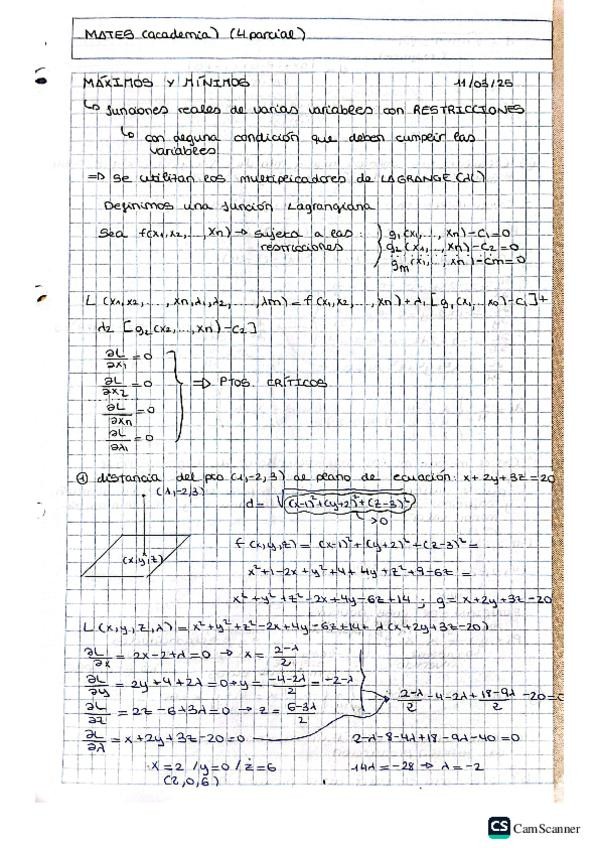 MATES (academia) (4 parcial)
MÁXIMOS Y MÍNIMOS 11/03/25
↳ funciones reales de varias variables con RESTRICCIONES
↳ con alguna condición que deben cumplir las
variables
=> Se utilizan los multiplicadores de LAGRANGE (λ)
Definimos una función Lagrangiana
Sea f(x1,x2,...,xn) → sujeta a las: g1(x1,...,xn)-c1=0
restricciones g2(x1,...,xn)-c2=0
gm(x1,...,xn)-cm=0
L(x1,x2,...,xn,λ1,λ2,...,λm)=f(x1,x2,...,xn)+λ1[g1(x1,...xn)-c1]+
λ2[g2(x2,...,xn)-c2]
∂L/∂x1=0
∂L/∂x2=0 => PTOS. CRÍTICOS
∂L/∂xn=0
∂L/∂λ1=0
① distancia del pto (1,-2,3) al plano de ecuación: x+2y+3z=20
(1,-2,3)
d=√(x-1)²+(y+2)²+(z-3)²
>0
(x,y,z)
f(x,y,z)=(x-1)²+(y+2)²+(z-3)²=
x²+1-2x+y²+4+4y+z²+9-6z=
x²+y²+z²-2x+4y-6z+14; g=x+2y+3z-20
L(x,y,z,λ)=x²+y²+z²-2x+4y-6z+14+λ(x+2y+3z-20)
∂L/∂x=2x-2+λ=0 → x=2-λ/2
∂L/∂y=2y+4+2λ=0 → y=-4-2λ/2=-2-λ
2-λ/2-4-2λ+18-9λ/2-20=0
∂L/∂z=2z-6+3λ=0 → z=6-3λ/2
∂L/∂λ=x+2y+3z-20=0
2-λ-8-4λ+18-9λ-40=0
x=2 / y=0 / z=6 14λ=-28 → λ=-2
(2,0,6)
CS CamScanner